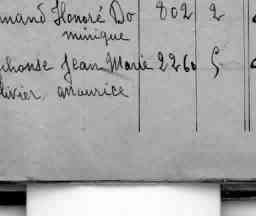 mand Honoré Do 802 2
minique
phonse Jean Marie 2260 5
livier, Maurice